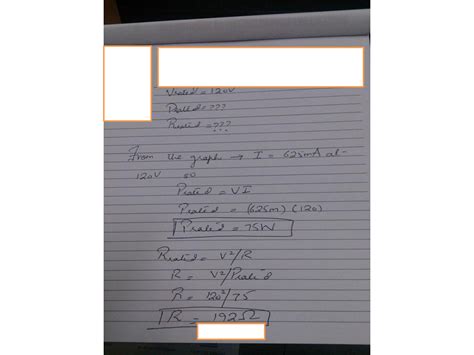 Vrated = 120V
Prated = ???
Rrated = ???
From the graph → I = 625mA at
120V so
Prated = VI
Prated = (625m) (120)
Prated = 75W
Rrated = V²/R
R = V²/Prated
R = 120²/75
R = 192Ω